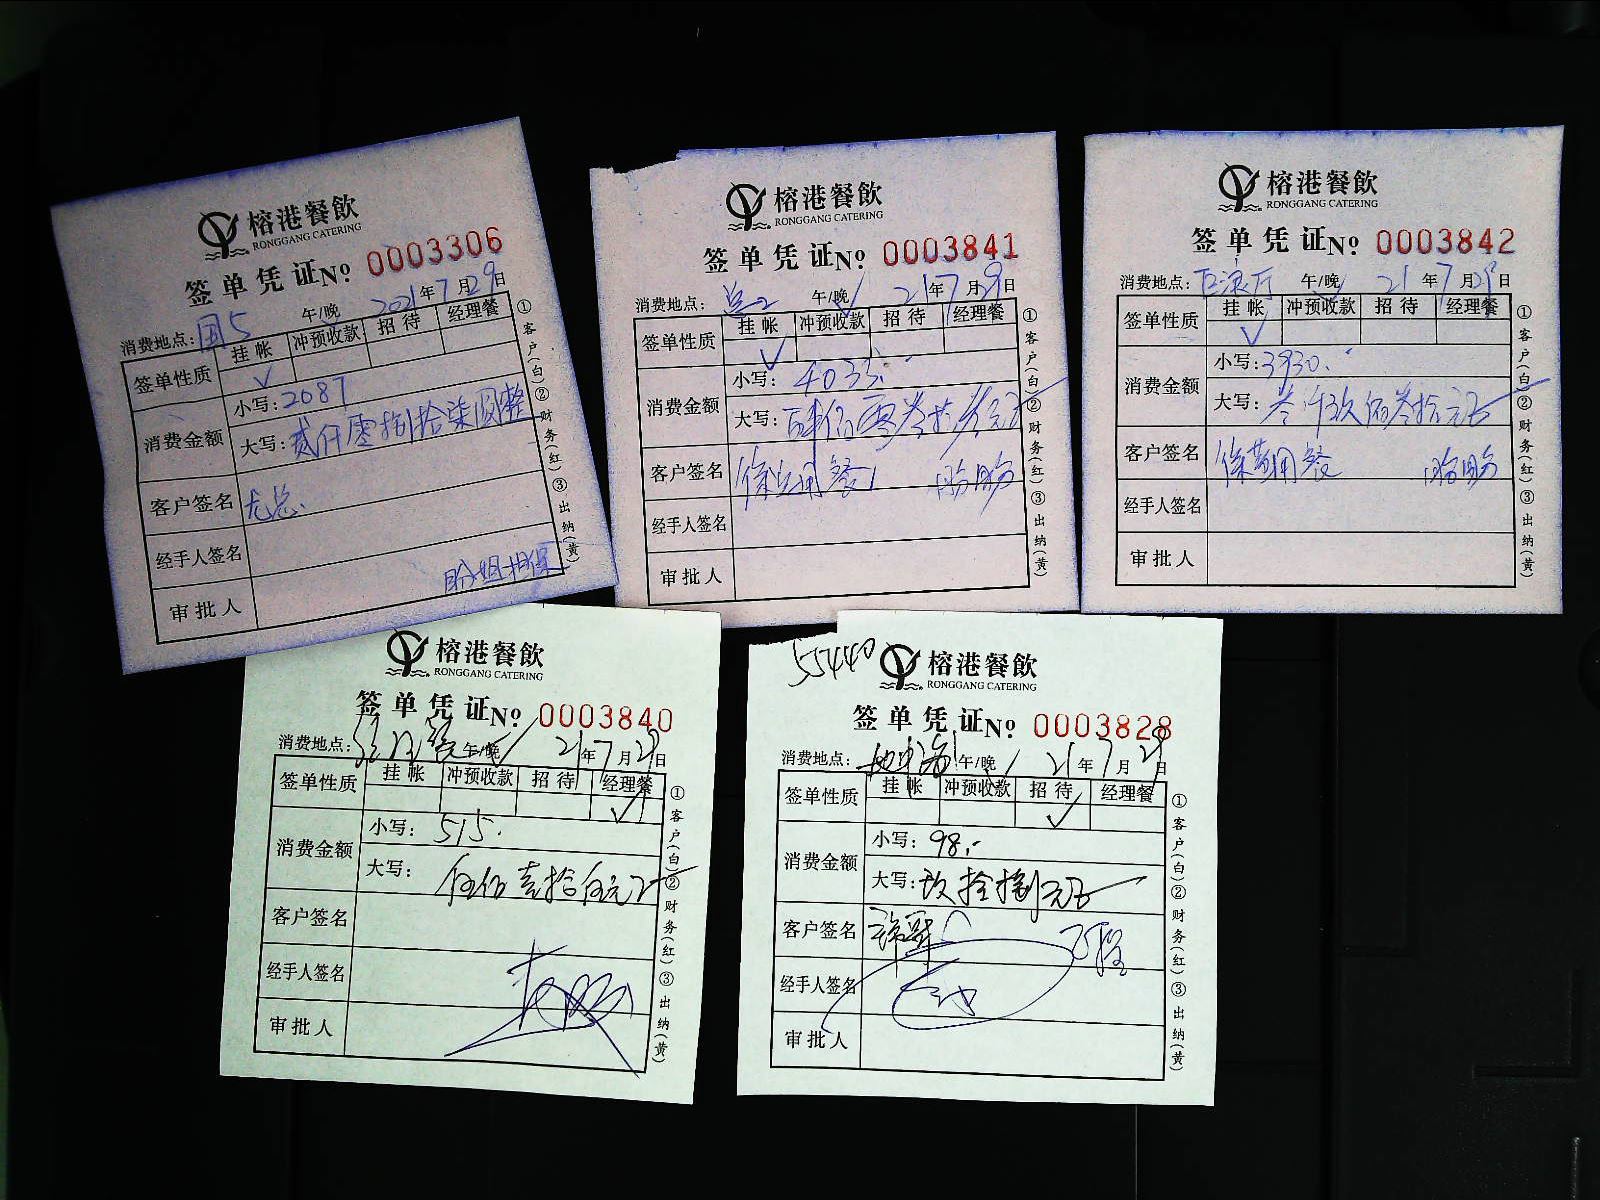 榕港餐飲
RONGGANG CATERING
签单凭证 No. 0003306
消费地点：国5 午/晚 2021年7月29日
签单性质 挂帐 冲预收款 招待 经理餐
✓
消费金额 小写：2087
大写：贰仟零捌拾柒圆整
客户签名 尤总
经手人签名
盼姐担保
审批人
①客户(白)②财务(红)③出纳(黄)
榕港餐飲
RONGGANG CATERING
签单凭证 No. 0003841
消费地点： 午/晚 21年7月29日
签单性质 挂帐 冲预收款 招待 经理餐
✓
消费金额 小写：
大写：
客户签名 盼盼
经手人签名
审批人
①客户(白)②财务(红)③出纳(黄)
榕港餐飲
RONGGANG CATERING
签单凭证 No. 0003842
消费地点： 午/晚 21年7月29日
签单性质 挂帐 冲预收款 招待 经理餐
✓
消费金额 小写：3930.
大写：叁仟玖佰叁拾元正
客户签名 盼盼
经手人签名
审批人
①客户(白)②财务(红)③出纳(黄)
榕港餐飲
RONGGANG CATERING
签单凭证 No. 0003840
消费地点： 午/晚 21年7月29日
签单性质 挂帐 冲预收款 招待 经理餐
✓
消费金额 小写：515.
大写：伍佰壹拾伍元正
客户签名
经手人签名
审批人
①客户(白)②财务(红)③出纳(黄)
55440
榕港餐飲
RONGGANG CATERING
签单凭证 No. 0003828
消费地点： 午/晚 21年7月29日
签单性质 挂帐 冲预收款 招待 经理餐
✓
消费金额 小写：98.-
大写：玖拾捌元正
客户签名
经手人签名
审批人
①客户(白)②财务(红)③出纳(黄)